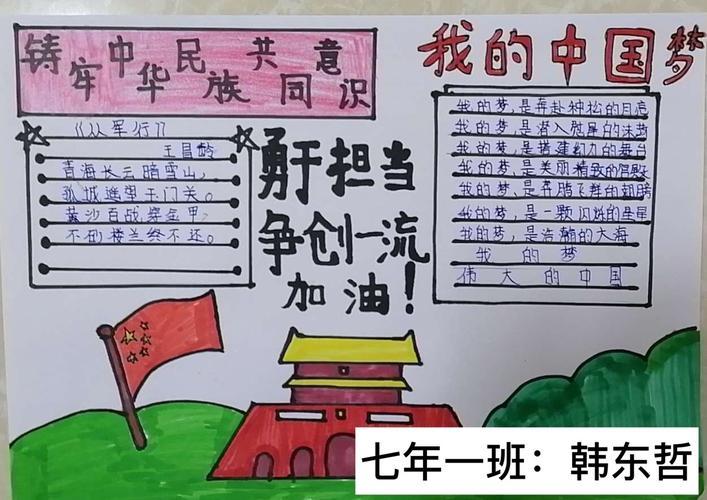 铸牢中华民族共同意识
我的中国梦
《从军行》
王昌龄
青海长云暗雪山,
孤城遥望玉门关。
黄沙百战穿金甲,
不破楼兰终不还。
勇于担当
争创一流
加油!
我的梦,是奔赴神松的日
我的梦,是潜入
我的梦,是搭建幻力的舞台
我的梦,是美丽精致的宫殿
我的梦,是奔腾飞舞的翅膀
我的梦,是一颗闪烁的星星
我的梦,是浩瀚的大海
我的梦
伟大的中国
七年一班：韩东哲